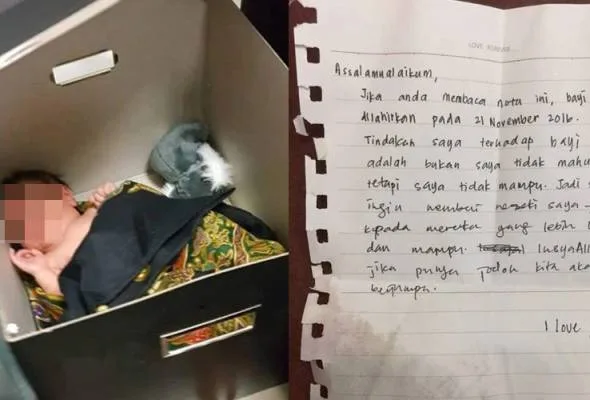 LOVE FOREVER
Assalamualaikum,
Jika anda membaca nota ini, bayi
dilahirkan pada 21 November 2016.
Tindakan saya terhadap bayi
adalah bukan saya tidak mahu
tetapi saya tidak mampu. Jadi
ingin memberi rezeki saya
kepada mereka yang lebih
dan mampu. InsyaAll
jika punya jodoh kita aka
berjumpa.
I love